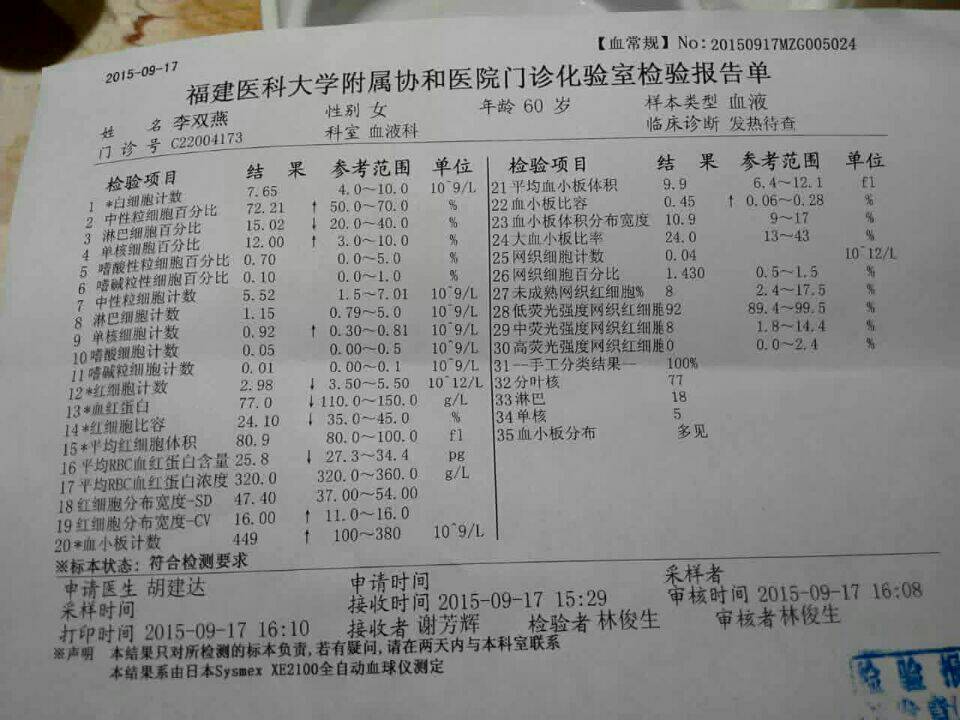 【血常规】No: 20150917MZG005024
2015-09-17
福建医科大学附属协和医院门诊化验室检验报告单
姓 名 李双燕 性别 女 年龄 60 岁 样本类型 血液
门 诊 号 C22004173 科室 血液科 临床诊断 发热待查
检验项目 结 果 参考范围 单位
1 *白细胞计数 7.65 4.0~10.0 10^9/L
2 中性粒细胞百分比 72.21 ↑ 50.0~70.0 %
3 淋巴细胞百分比 15.02 ↓ 20.0~40.0 %
4 单核细胞百分比 12.00 ↑ 3.0~10.0 %
5 嗜酸性粒细胞百分比 0.70 0.0~5.0 %
6 嗜碱粒性细胞百分比 0.10 0.0~1.0 %
7 中性粒细胞计数 5.52 1.5~7.01 10^9/L
8 淋巴细胞计数 1.15 0.79~5.0 10^9/L
9 单核细胞计数 0.92 ↑ 0.30~0.81 10^9/L
10 嗜酸细胞计数 0.05 0.00~0.5 10^9/L
11 嗜碱粒细胞计数 0.01 0.00~0.1 10^9/L
12 *红细胞计数 2.98 ↓ 3.50~5.50 10^12/L
13 *血红蛋白 77.0 ↓ 110.0~150.0 g/L
14 *红细胞比容 24.10 ↓ 35.0~45.0 %
15 *平均红细胞体积 80.9 80.0~100.0 fl
16 平均RBC血红蛋白含量 25.8 ↓ 27.3~34.4 pg
17 平均RBC血红蛋白浓度 320.0 320.0~360.0 g/L
18 红细胞分布宽度-SD 47.40 37.00~54.00
19 红细胞分布宽度-CV 16.00 ↑ 11.0~16.0
20 *血小板计数 449 ↑ 100~380 10^9/L
检验项目 结 果 参考范围 单位
21 平均血小板体积 9.9 6.4~12.1 fl
22 血小板比容 0.45 ↑ 0.06~0.28 %
23 血小板体积分布宽度 10.9 9~17 %
24 大血小板比率 24.0 13~43 %
25 网织细胞计数 0.04 10^12/L
26 网织细胞百分比 1.430 0.5~1.5 %
27 未成熟网织红细胞% 8 2.4~17.5 %
28 低荧光强度网织红细胞 92 89.4~99.5 %
29 中荧光强度网织红细胞 8 1.8~14.4 %
30 高荧光强度网织红细胞 0 0.0~2.4 %
31 --手工分类结果-- 100%
32 分叶核 77
33 淋巴 18
34 单核 5
35 血小板分布 多见
※标本状态: 符合检测要求
申请医生 胡建达 申请时间 采样者
采样时间 接收时间 2015-09-17 15:29 审核时间 2015-09-17 16:08
打印时间 2015-09-17 16:10 接收者 谢芳辉 检验者 林俊生 审核者 林俊生
※声明 本结果只对所检测的标本负责,若有疑问,请在两天内与本科室联系
本结果系由日本Sysmex XE2100全自动血球仪测定
检验报